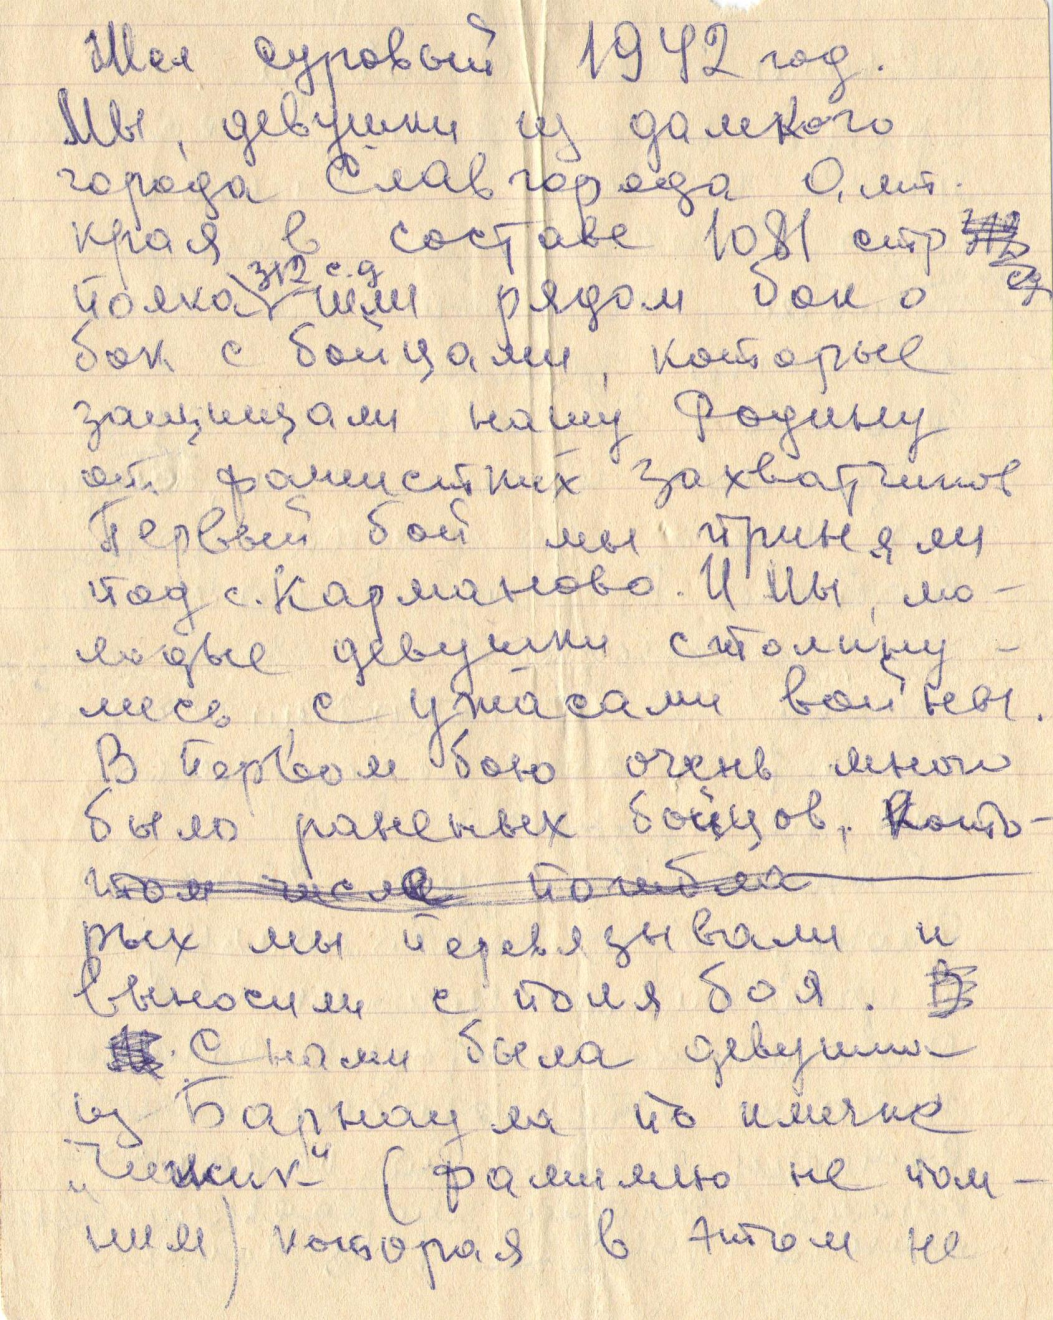 Шел суровый 1942 год.
Мы, девушки из далекого
города Славгорода Алт.
края в составе 1081 стр
312 с.д
полка шли рядом бок о
бок с бойцами, которые
защищали нашу Родину
от фашистких захватчиков
Первый бой мы приняли
под с. Карманово. И мы, мо-
лодые девушки столкну-
лись с ужасами войны.
В первом бою очень много
было раненых бойцов. Кото-
том числе погибла
рых мы перевязывали и
выносили с поля боя.
С нами была девушка
из Барнаула по кличке
„Чижик“ (фамилию не пом-
ним) которая в этом не